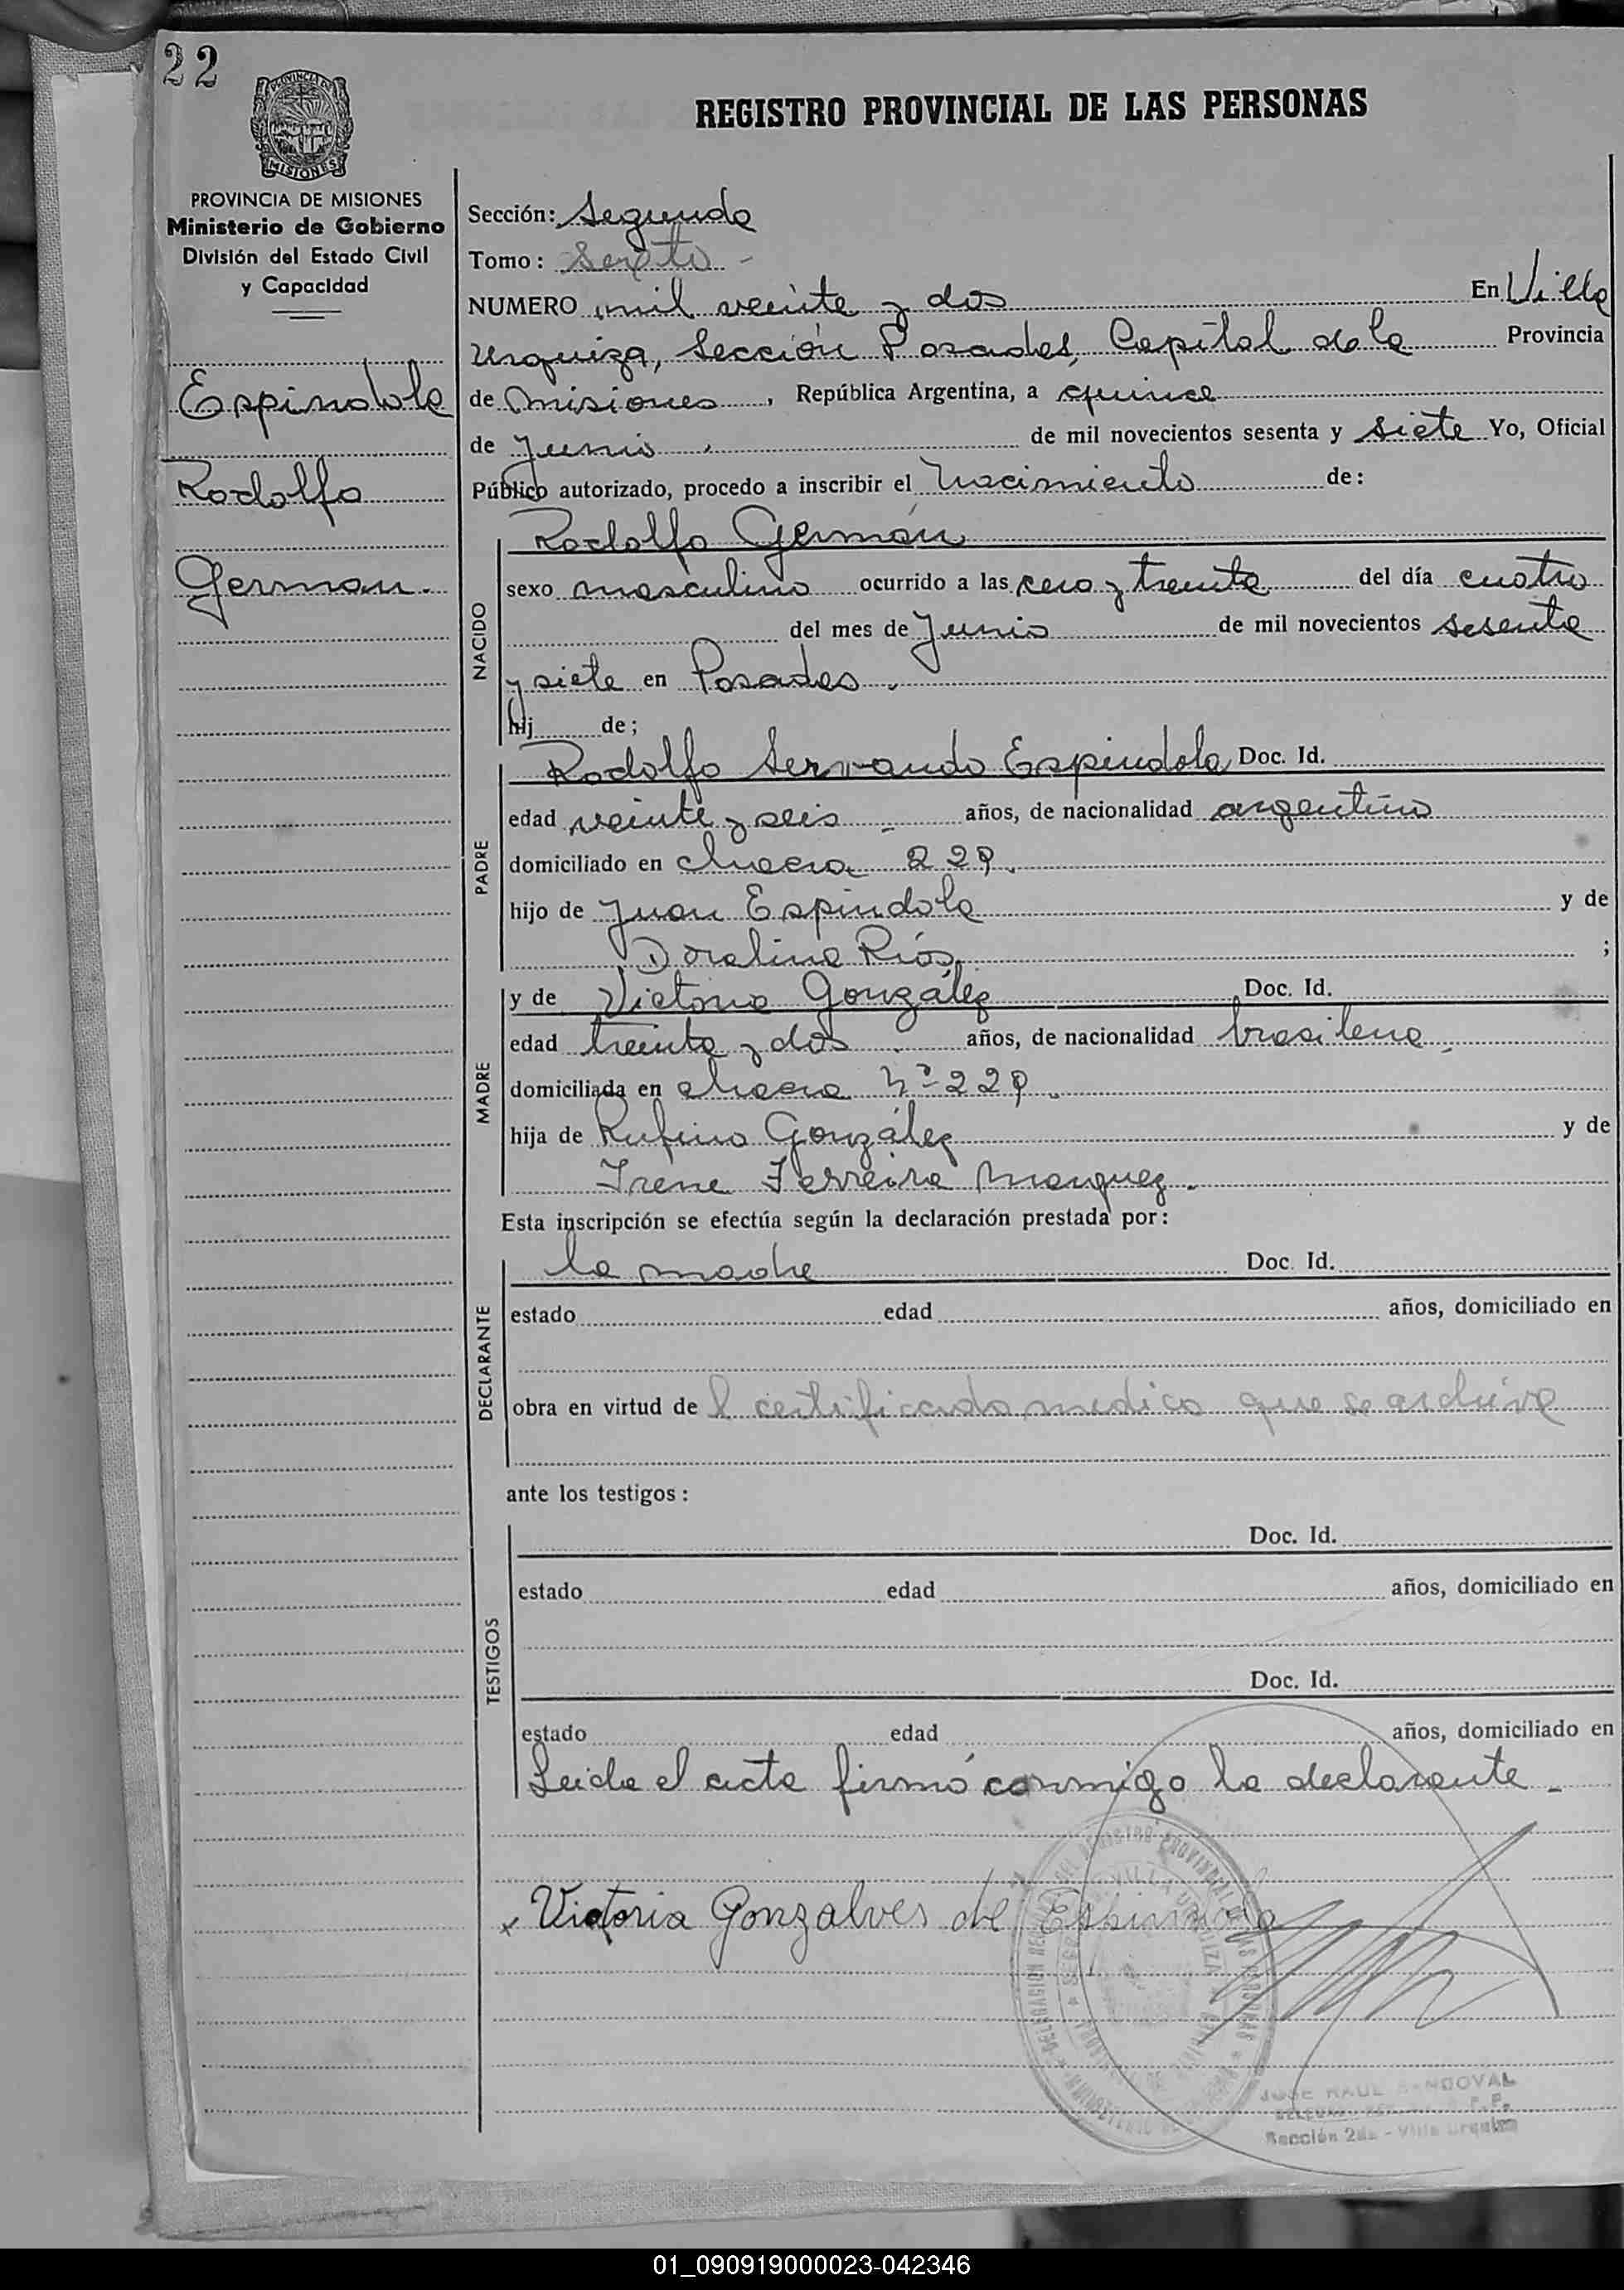 22
PROVINCIA DE
MISIONES
REGISTRO PROVINCIAL DE LAS PERSONAS
PROVINCIA DE MISIONES
Ministerio de Gobierno
División del Estado Civil
y Capacidad
Espindola
Rodolfo
German.
Sección: Segunda
Tomo: Sexto -
NUMERO mil veinte y dos En Villa
Urquiza, Sección Posadas, Capital de la Provincia
de Misiones, República Argentina, a quince
de Junio. de mil novecientos sesenta y siete Yo, Oficial
Público autorizado, procedo a inscribir el Nacimiento de:
NACIDO
Rodolfo Germán
sexo masculino ocurrido a las cero y treinta del día cuatro
del mes de Junio de mil novecientos sesenta
y siete en Posadas.
hij de;
PADRE
Rodolfo Servando Espindola Doc. Id.
edad veinte y seis - años, de nacionalidad argentino
domiciliado en chacra 229.
hijo de Juan Espindola y de
Doralina Ríos. ;
MADRE
y de Victoria González Doc. Id.
edad treinta y dos. años, de nacionalidad brasilena.
domiciliada en chacra Nº 229.
hija de Rufino González y de
Irene Ferreira Marquez.
Esta inscripción se efectúa según la declaración prestada por:
DECLARANTE
la madre Doc. Id.
estado edad años, domiciliado en
obra en virtud del certificado medico que se archiva
ante los testigos:
TESTIGOS
Doc. Id.
estado edad años, domiciliado en
Doc. Id.
estado edad años, domiciliado en
Leida el acta firmó conmigo la declarante -
x Victoria Gonzalves de Espindola
JOSE RAUL SANDOVAL
Sección 2da - Villa Urquiza
01_090919000023-042346